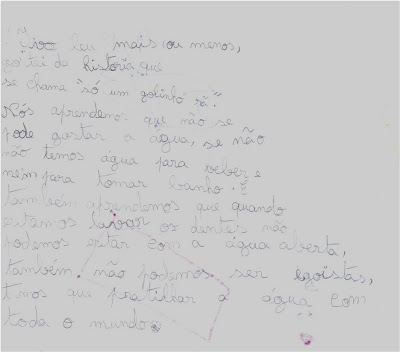 leu mais ou menos,
gostei da história que
se chama "só um golinho rã."
Nós aprendemo. que não se
pode gastar a água, se não
não temos água para beber e
nem para tomar banho. E
também aprendemos que quando
estamos lavar os dentes não
podemos estar com a água aberta,
também não podemos ser egoistas,
temos que pratilhar a água com
toda o mundo